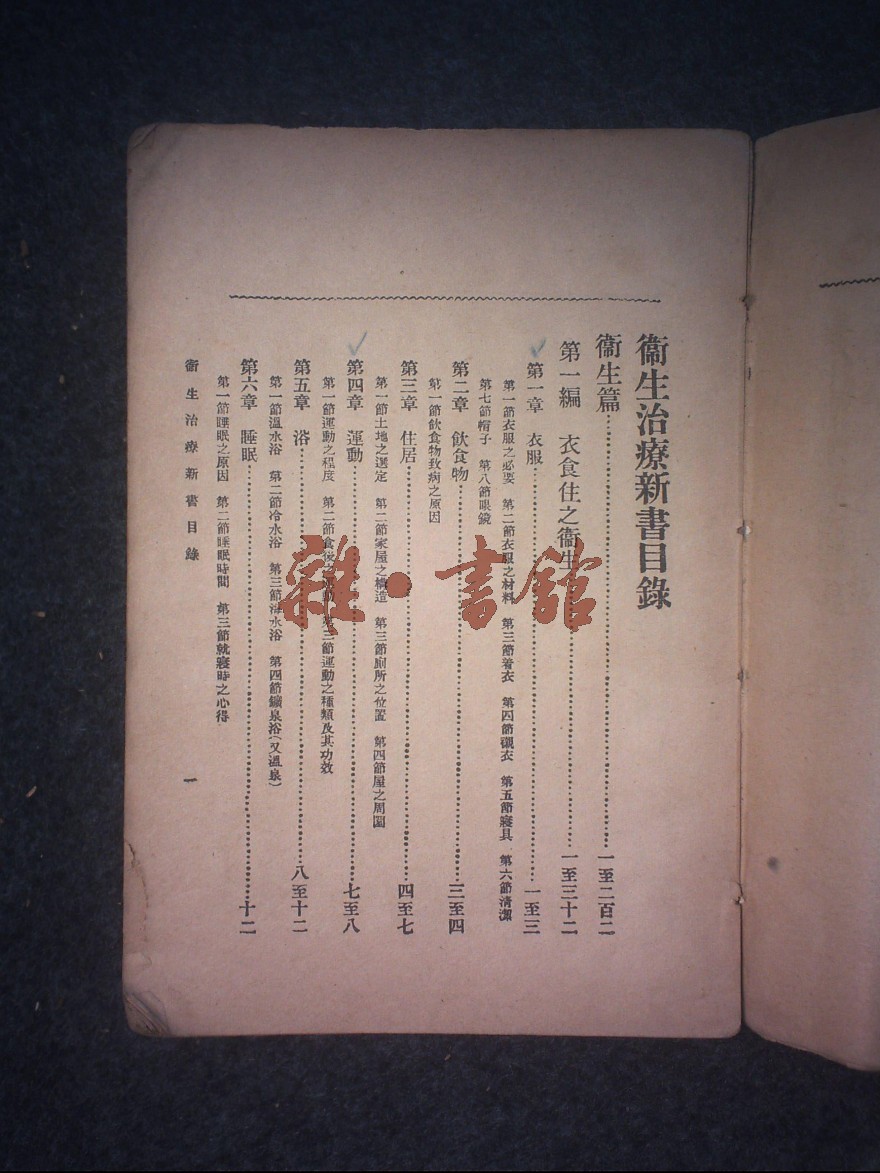 衞生治療新書目錄
衞生篇……一至二百二
第一編　衣食住之衞生……一至三十二
第一章　衣服……一至三
第一節衣服之必要　第二節衣服之材料　第三節着衣　第四節襯衣　第五節寢具　第六節清潔
第七節帽子　第八節眼鏡
第二章　飲食物……三至四
第一節飲食物致病之原因
第三章　住居……四至七
第一節土地之選定　第二節家屋之構造　第三節廁所之位置　第四節屋之周圍
第四章　運動……七至八
第一節運動之程度　第二節食後之運動　第三節運動之種類及其功效
第五章　浴……八至十二
第一節溫水浴　第二節冷水浴　第三節海水浴　第四節鑛泉浴（又溫泉）
第六章　睡眠……十二
第一節睡眠之原因　第二節睡眠時間　第三節就寢時之心得
衞生治療新書目錄　一
雜·書館